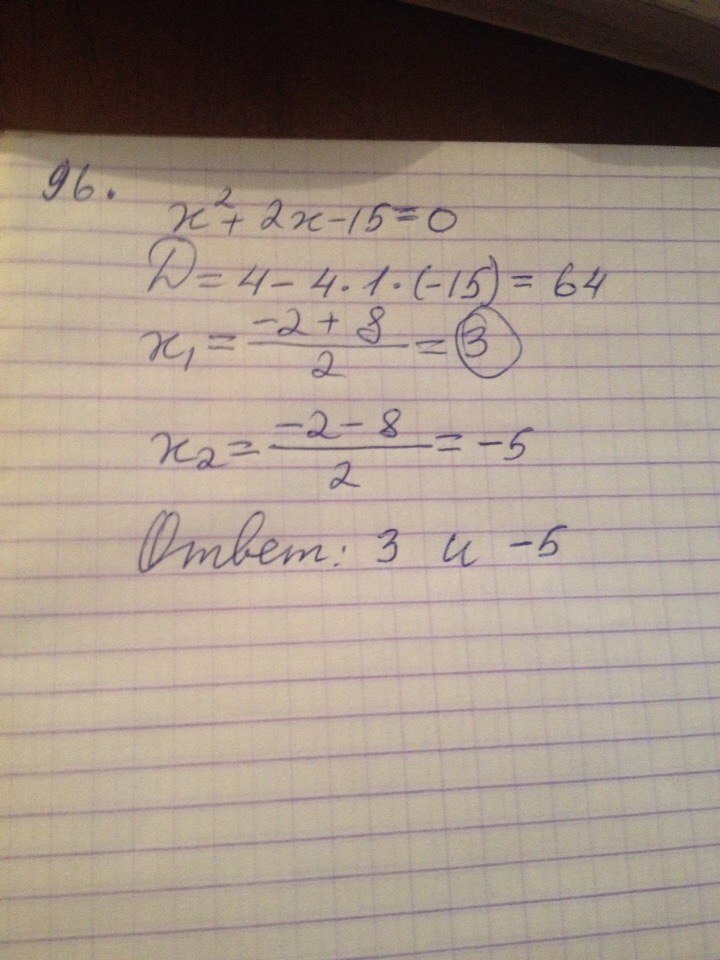 96.
x² + 2x - 15 = 0
D = 4 - 4 · 1 · (-15) = 64
x₁ = (-2 + 8)/2 = 3
x₂ = (-2 - 8)/2 = -5
Ответ: 3 и -5